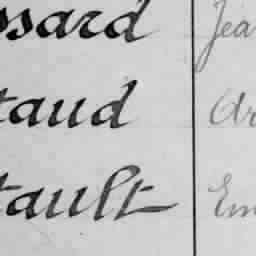 ssard Jea
taud Ar
tault Em